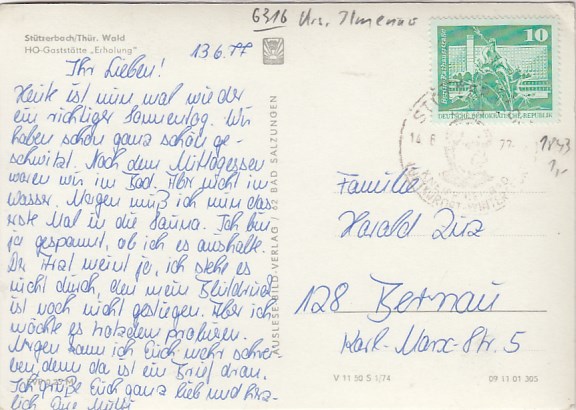 6316 Krs. Ilmenau
Stützerbach/Thür. Wald
HO-Gaststätte „Erholung"
13.6.77
Ihr Lieben!
Heute ist nun mal wieder
ein richtiger Sonnentag. Wir
haben schon ganz schön ge-
schwitzt. Nach dem Mittagessen
waren wir im Bad. Aber nicht im
Wasser. Morgen muß ich nun das
erste Mal in die Sauna. Ich bin
ja gespannt, ob ich es aushalte.
Der Arzt meint ja, ich stehe es
nicht durch, denn mein Blutdruck
ist noch nicht gestiegen. Aber ich
möchte es trotzdem probieren.
Morgen kann ich Euch mehr schrei-
ben, denn da ist ein Brief dran.
Ich grüße Euch ganz lieb und herz-
lich Eure Mutti
AUSLESE-BILD-VERLAG / 62 BAD SALZUNGEN
Berlin, Rathausstraße
10
DEUTSCHE DEMOKRATISCHE REPUBLIK
14.6. 77
Familie
Harald
128 Bernau
Karl-Marx-Str. 5
V 11 50 S 1/74
09 11 01 305